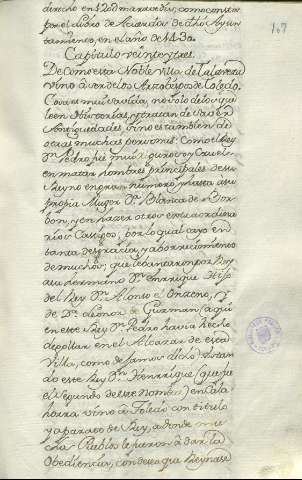 167
derecho en 1200 maravedis, como consta
por el libro de Acuerdos de dho Ayun
tamiento, en el año de 1430.
Capitulo veinte y tres.
De como esta Noble Villa de Talavera
vino à ser de los Arzobispos de Toledo.
Cosa es mui sabida, no solo de los que
leen Historias, y tratan de saver
Antiguedades, sino es tambien de
otras muchas personas: como el Rey
Dn Pedro fue mui riguroso y Cruel
en matar hombres principales de su
Reyno en gran numero y hasta a su
propia Muger Da Blanca de Bor
bon, y en hazer otros extraordina
rios Castigos, por lo qual cayo en
tanta desgracia, y aborrecimiento
de muchos, que levantaron por Rey
a su hermano Dn Enrrique Hijo
del Rey Dn Alonso el Onzeno, y
de Da Leonor de Guzman (a qui
en este Rey Dn Pedro havia hecho
degollar en el Alcazar de esta
Villa, como dejamos dicho) estan
do este Rey Dn Henrrique (que fue
el segundo de este Nombre) en Cala
horra vino à Toledo con titulo
y aparato de Rey, a donde mu
cha Pueblos le fueron à dar la
Obediencia, con desea que Reynase